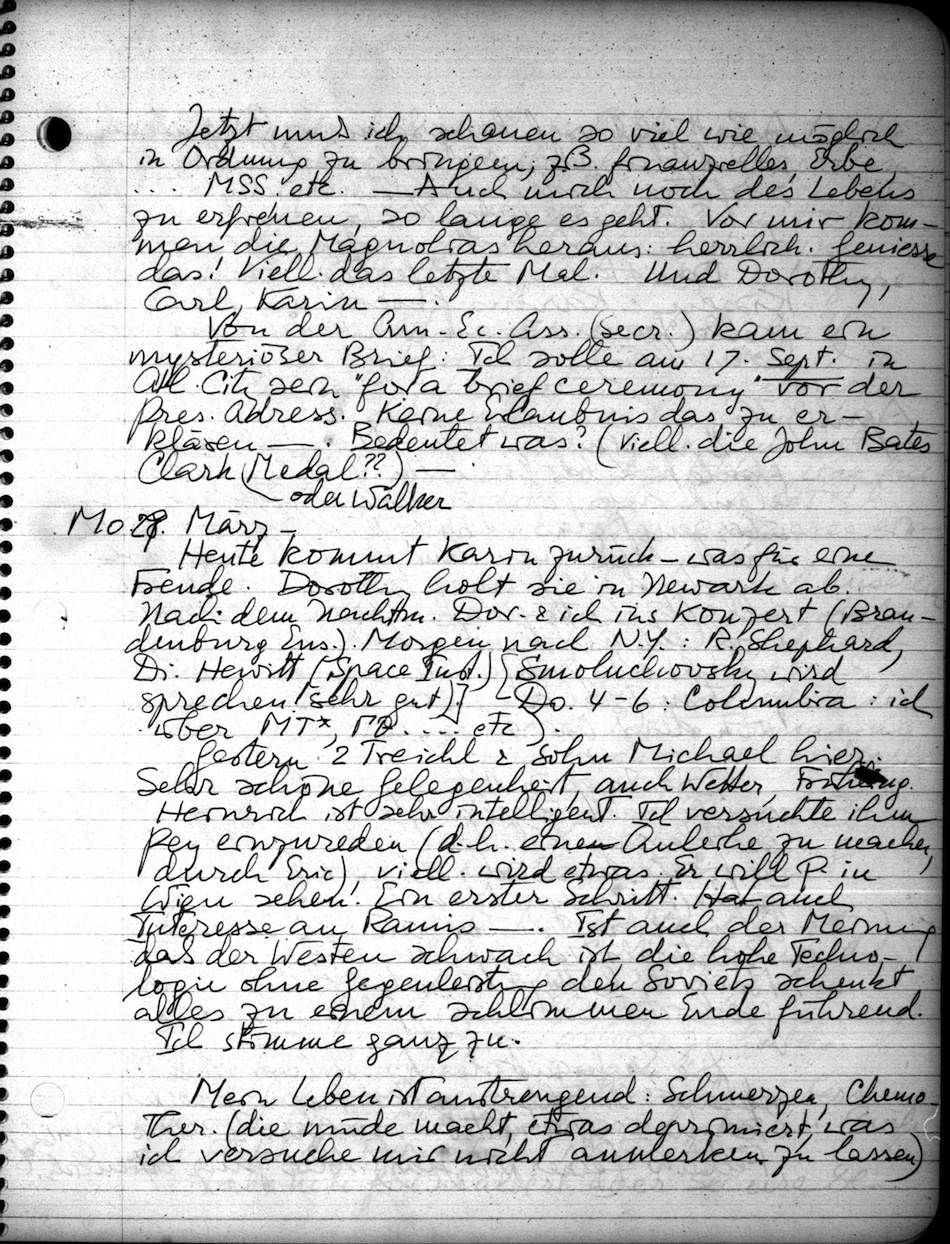 Jetzt muß ich schauen so viel wie möglich
in Ordnung zu bringen, z.B. finanzielles, Erbe,
... MSS. etc. — Auch mich noch des Lebens
zu erfreuen, so lange es geht. Vor mir kom-
men die Magnolias heraus: herrlich. Geniesse
das! Viell. das letzte Mal. Und Dorothy,
Carl, Karin —.
Von der Am. Ec. Ass. (Secr.) kam ein
mysteriöser Brief: Ich solle am 17. Sept. in
Atl. City sein "for a brief ceremony" vor der
Pres. Adress. Keine Erlaubnis das zu er-
klären —. Bedeutet was? (Viell. die John Bates
Clark Medal??) —.
oder Walker
Mo 28. März —
Heute kommt Karin zurück – was für eine
Freude. Dorothy holt sie in Newark ab.
Nach dem Nachtm. Dor. & ich ins Konzert (Bran-
denburg Ens.). Morgen nach N.Y.: R. Shephard,
Di. Hewitt (Space Inst.) [Smoluchovsky wird
sprechen (sehr gut)]. Do. 4–6: Columbia: ich
über MT*, .... etc).
Gestern 2 Treichl & Sohn Michael hier.
Sehr schöne Gelegenheit, auch Wetter, Frühling.
Heinrich ist sehr intelligent. Ich versuchte ihm
einzureden (d.h. einen Anleihe zu machen,
durch Eric), viell. wird etwas. Er will P. in
Wien sehen. Ein erster Schritt. Hat auch
Interesse an Ramis —. Ist auch der Meinung
das der Westen schwach ist die hohe Techno-
logie ohne Gegenleistung den Soviets schenkt
alles zu einem schlimmen Ende führend.
Ich stimme ganz zu.
Mein Leben ist anstrengend: Schmerzen, Chemo-
Ther. (die müde macht, etwas deprimiert, was
ich versuche mir nicht anmerken zu lassen)